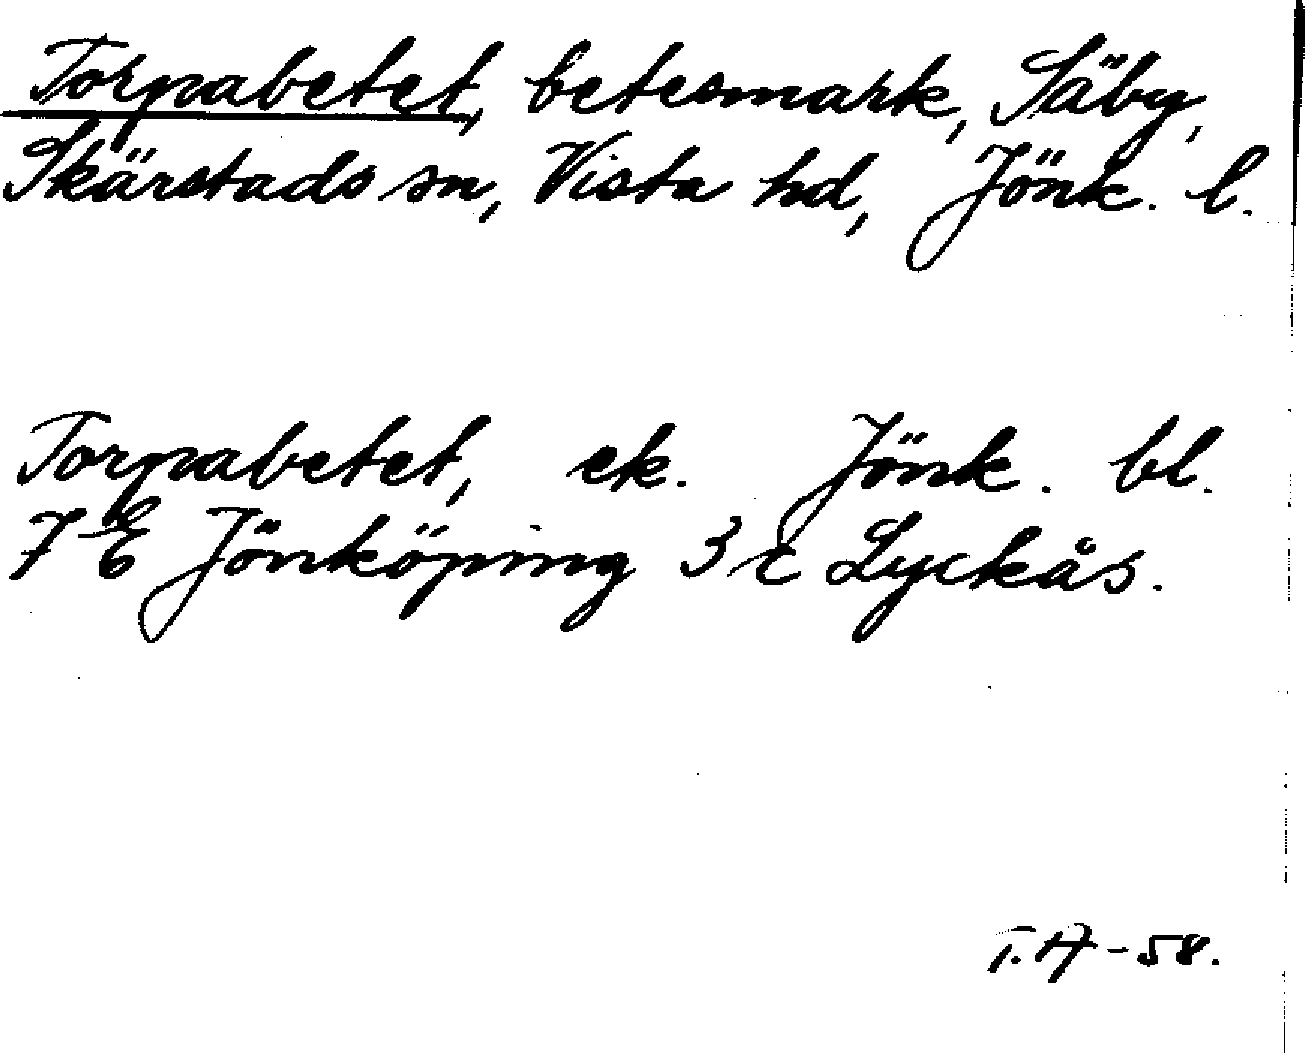 Torpabetet, betesmark, Säby,
Skärstads sn, Vista hd, Jönk. l.
Torpabetet, ek. Jönk. bl.
7 E Jönköping 3 c Lyckås.
T.A-58.